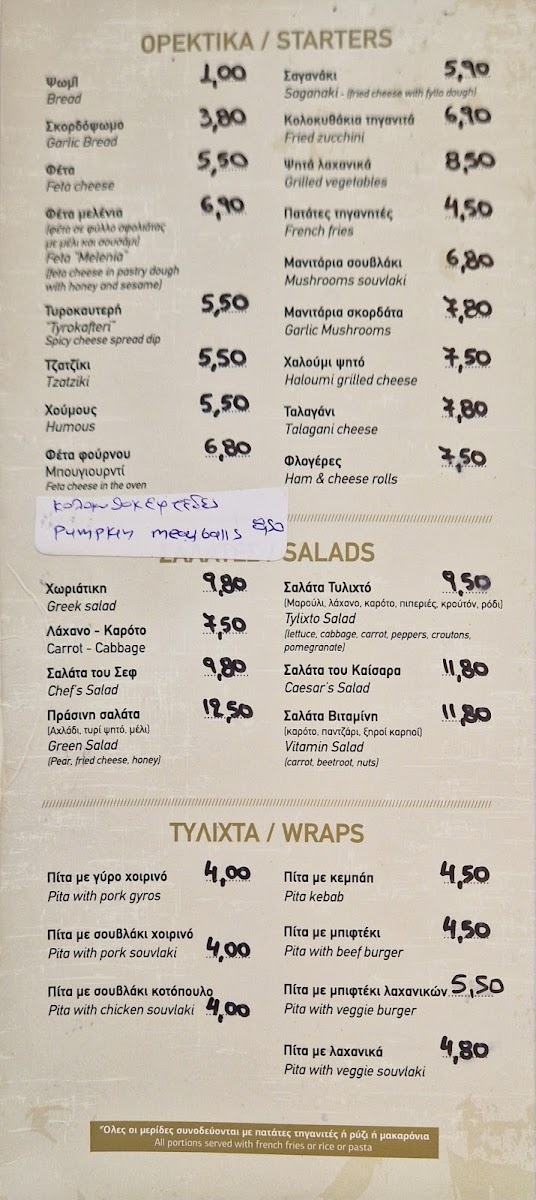 ΟΡΕΚΤΙΚΑ / STARTERS
Ψωμί 1,00
Bread
Σκορδόψωμο 3,80
Garlic Bread
Φέτα 5,50
Feta cheese
Φέτα μελένια 6,90
(φέτα σε φύλλο σφολιάτας
με μέλι και σουσάμι)
Feta "Melenia"
(feta cheese in pastry dough
with honey and sesame)
Τυροκαυτερή 5,50
"Tyrokafteri"
Spicy cheese spread dip
Τζατζίκι 5,50
Tzatziki
Χούμους 5,50
Humous
Φέτα φούρνου 6,80
Μπουγιουρντί
Feta cheese in the oven
κολοκυθοκεφτεδες
Pumpkin meatballs 8,50
Σαγανάκι 5,90
Saganaki - (fried cheese with fyllo dough)
Κολοκυθάκια τηγανιτά 6,90
Fried zucchini
Ψητά λαχανικά 8,50
Grilled vegetables
Πατάτες τηγανητές 4,50
French fries
Μανιτάρια σουβλάκι 6,80
Mushrooms souvlaki
Μανιτάρια σκορδάτα 7,80
Garlic Mushrooms
Χαλούμι ψητό 7,50
Haloumi grilled cheese
Ταλαγάνι 7,80
Talagani cheese
Φλογέρες 7,50
Ham & cheese rolls
/ SALADS
Χωριάτικη 9,80
Greek salad
Λάχανο - Καρότο 7,50
Carrot - Cabbage
Σαλάτα του Σεφ 9,80
Chef's Salad
Πράσινη σαλάτα 12,50
(Αχλάδι, τυρί ψητό, μέλι)
Green Salad
(Pear, fried cheese, honey)
Σαλάτα Τυλιχτό 9,50
(Μαρούλι, λάχανο, καρότο, πιπεριές, κρουτόν, ρόδι)
Tylixto Salad
(lettuce, cabbage, carrot, peppers, croutons,
pomegranate)
Σαλάτα του Καίσαρα 11,80
Caesar's Salad
Σαλάτα Βιταμίνη 11,80
(καρότο, παντζάρι, ξηροί καρποί)
Vitamin Salad
(carrot, beetroot, nuts)
ΤΥΛΙΧΤΑ / WRAPS
Πίτα με γύρο χοιρινό 4,00
Pita with pork gyros
Πίτα με σουβλάκι χοιρινό
Pita with pork souvlaki 4,00
Πίτα με σουβλάκι κοτόπουλο
Pita with chicken souvlaki 4,00
Πίτα με κεμπάπ 4,50
Pita kebab
Πίτα με μπιφτέκι 4,50
Pita with beef burger
Πίτα με μπιφτέκι λαχανικών 5,50
Pita with veggie burger
Πίτα με λαχανικά 4,80
Pita with veggie souvlaki
*Όλες οι μερίδες συνοδεύονται με πατάτες τηγανιτές ή ρύζι ή μακαρόνια
All portions served with french fries or rice or pasta